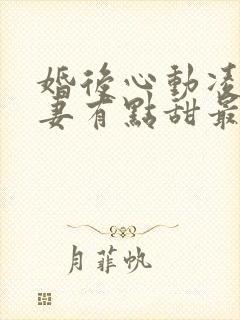 婚後心動凌
妻有點甜最
月菲帆